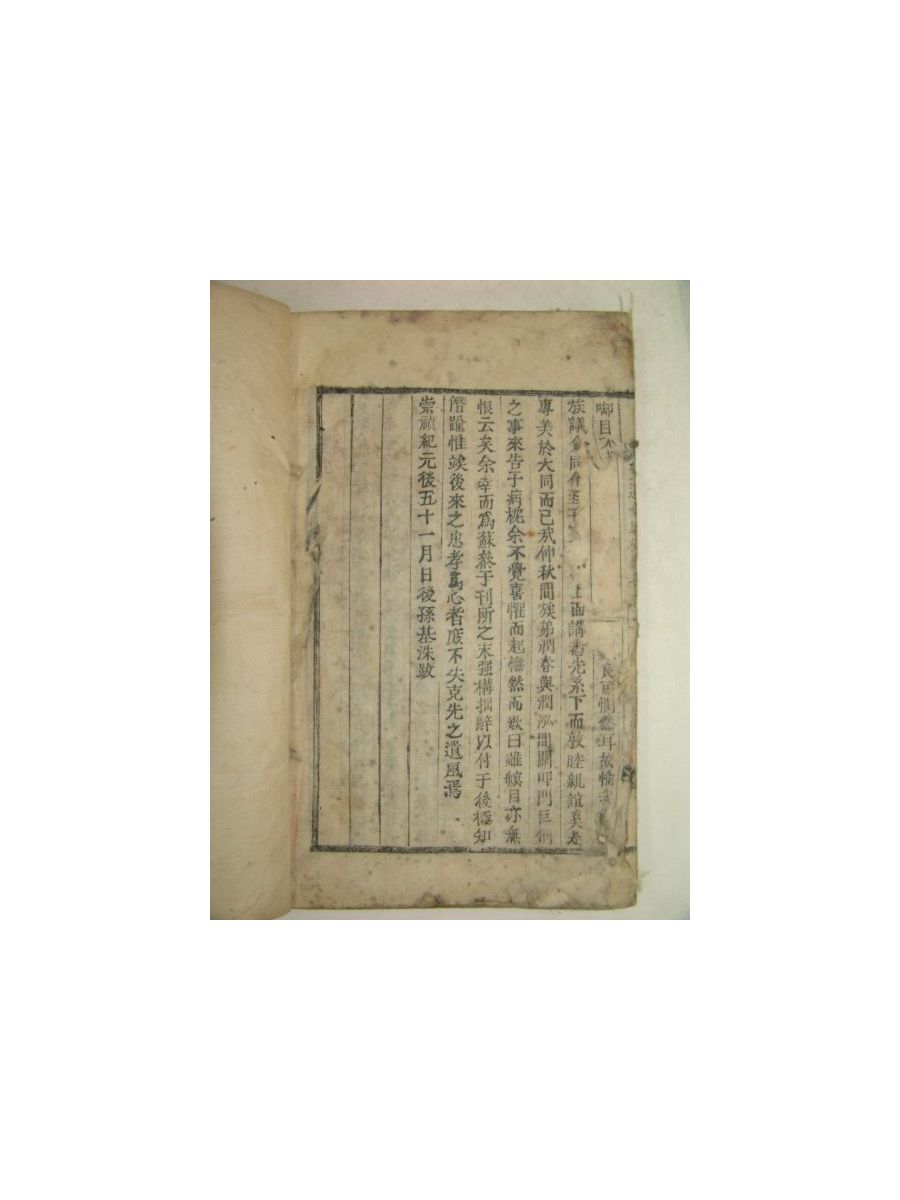 啣目
族議 上而講 先系下而敦睦親誼矣
專美於大同而已哉仲秋間族弟潤春與潤泓間關叩門巨
之事來告予病枕余不覺喜懼而起憮然而歎曰雖瞑目亦無
恨云矣余幸而爲蘇 于刊所之末强構拙辭以付于後極知
僭踰惟竢後來之忠孝爲心者庶不失克先之遺風焉
崇禎紀元後五十一月日後孫基洙跋